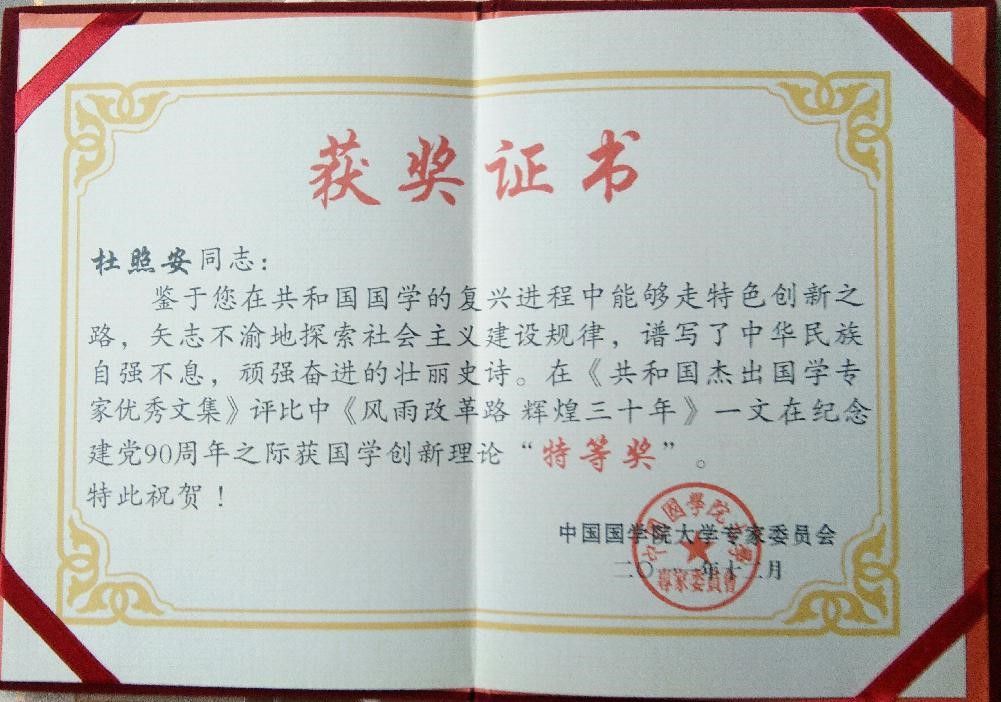 获奖证书
杜照安同志：
鉴于您在共和国国学的复兴进程中能够走特色创新之
路，矢志不渝地探索社会主义建设规律，谱写了中华民族
自强不息，顽强奋进的壮丽史诗。在《共和国杰出国学专
家优秀文集》评比中《风雨改革路 辉煌三十年》一文在纪念
建党90周年之际获国学创新理论“特等奖”。
特此祝贺！
中国国学院大学专家委员会
二〇 年十二月
中国國學院大學
專家委員會